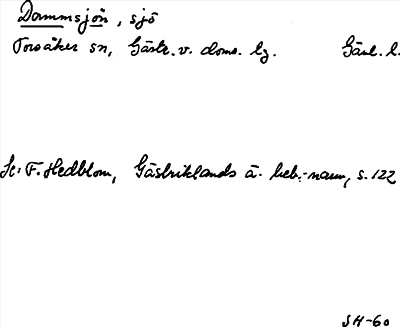 Dammsjön, sjö
Torsåker sn, Gästr. v. doms. tg. Gävl. l.
Se: F. Hedblom, Gästriklands ä. beb.-namn, s. 122
SH-60